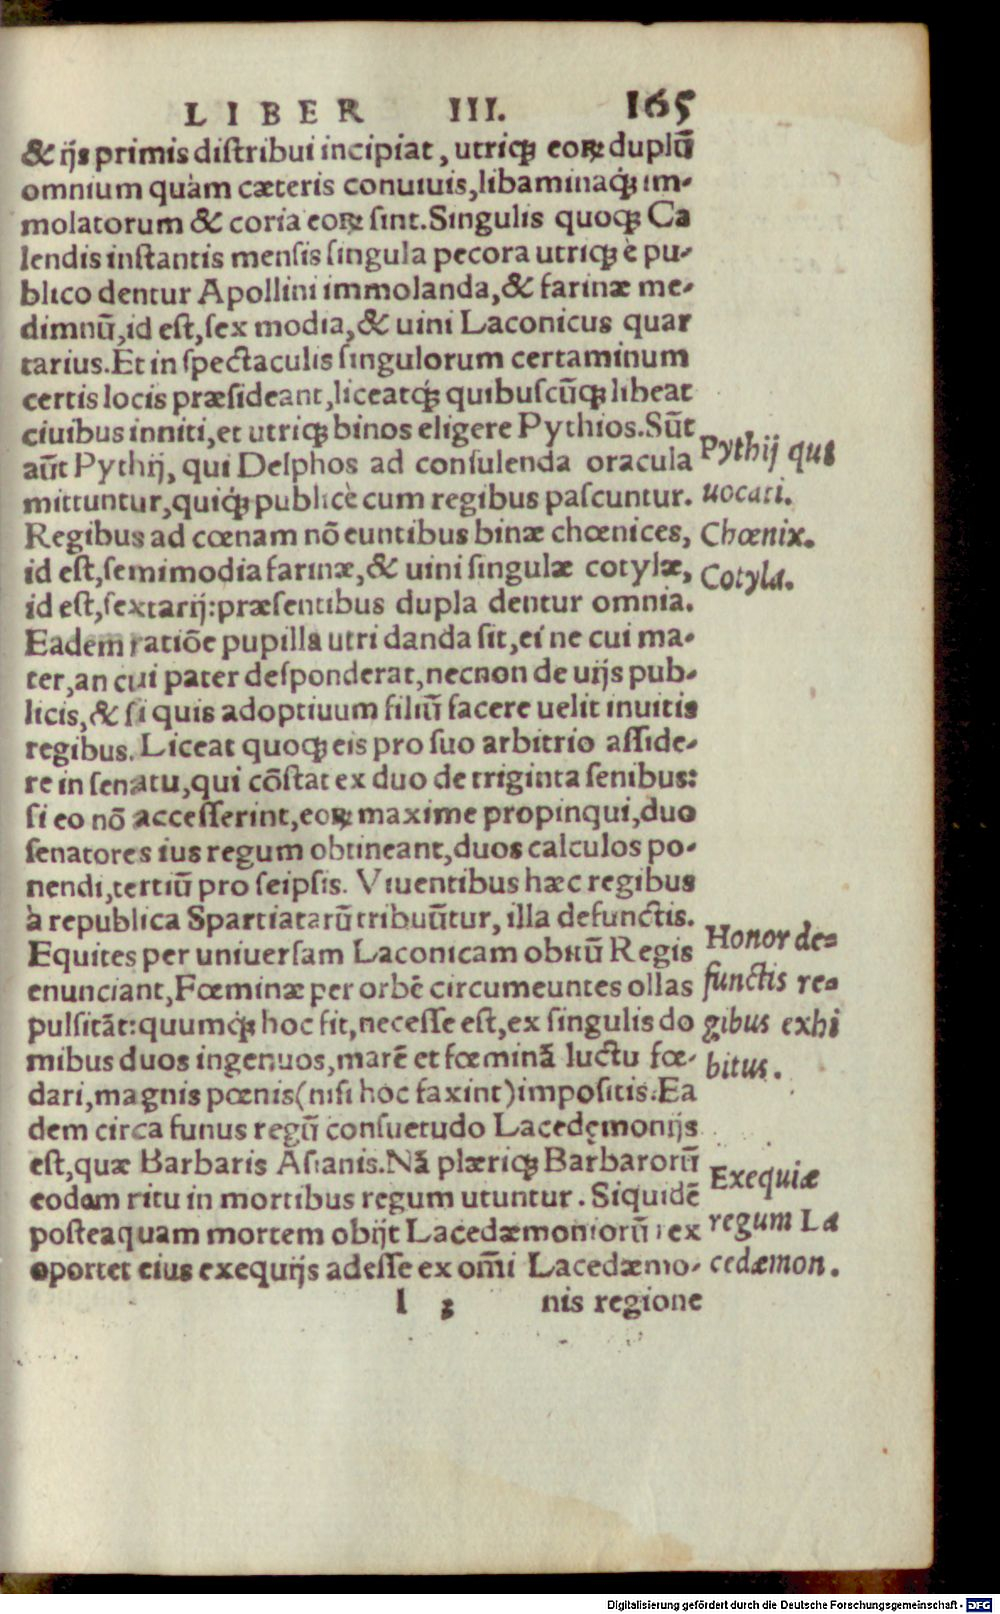 LIBER III. 165
& ijs primis distribui incipiat, utriq; eoꝝ duplũ
omnium quàm cæteris conuiuis, libaminaq́; im-
molatorum & coria eoꝝ sint. Singulis quoq; Ca
lendis instantis mensis singula pecora utriq; è pu-
blico dentur Apollini immolanda, & farinæ me-
dimnũ, id est, sex modia, & uini Laconicus quar
tarius. Et in spectaculis singulorum certaminum
certis locis præsideant, liceatq́; quibuscũq; libeat
ciuibus inniti, et utriq; binos eligere Pythios. Sũt
aũt Pythij, qui Delphos ad consulenda oracula
mittuntur, quiq́; publicè cum regibus pascuntur.
Regibus ad cœnam nõ euntibus binæ chœnices,
id est, semimodia farinæ, & uini singulæ cotylæ,
id est, sextarij: præsentibus dupla dentur omnia.
Eadem ratiõe pupilla utri danda sit, ei ne cui ma-
ter, an cui pater desponderat, necnon de uijs pub-
licis, & si quis adoptiuum filiũ facere uelit inuitis
regibus. Liceat quoq; eis pro suo arbitrio asside-
re in senatu, qui cõstat ex duo de triginta senibus:
si eo nõ accesserint, eoꝝ maxime propinqui, duo
senatores ius regum obtineant, duos calculos po-
nendi, tertiũ pro seipsis. Viuentibus hæc regibus
à republica Spartiatarũ tribuũtur, illa defunctis.
Equites per uniuersam Laconicam obitũ Regis
enunciant, Fœminæ per orbẽ circumeuntes ollas
pulsitãt: quumq́; hoc fit, necesse est, ex singulis do
mibus duos ingenuos, marẽ et fœminã luctu fœ-
dari, magnis pœnis (nisi hoc faxint) impositis. Ea
dem circa funus regũ consuetudo Lacedęmonijs
est, quæ Barbaris Asianis. Nã plæriq; Barbarorũ
eodam ritu in mortibus regum utuntur. Siquidẽ
posteaquam mortem obijt Lacedæmoniorũ rex
oportet eius exequijs adesse ex om̃i Lacedæmo-
l 3 nis regione
Pythij qui
uocati.
Chœnix.
Cotyla.
Honor de-
functis re-
gibus exhi
bitus.
Exequiæ
regum La
cedæmon.
Digitalisierung gefördert durch die Deutsche Forschungsgemeinschaft - DFG